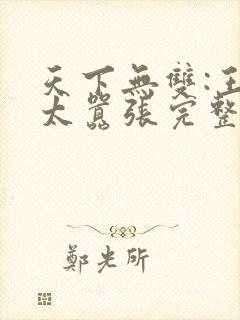 天下無雙:王
太囂張完整
鄭光所